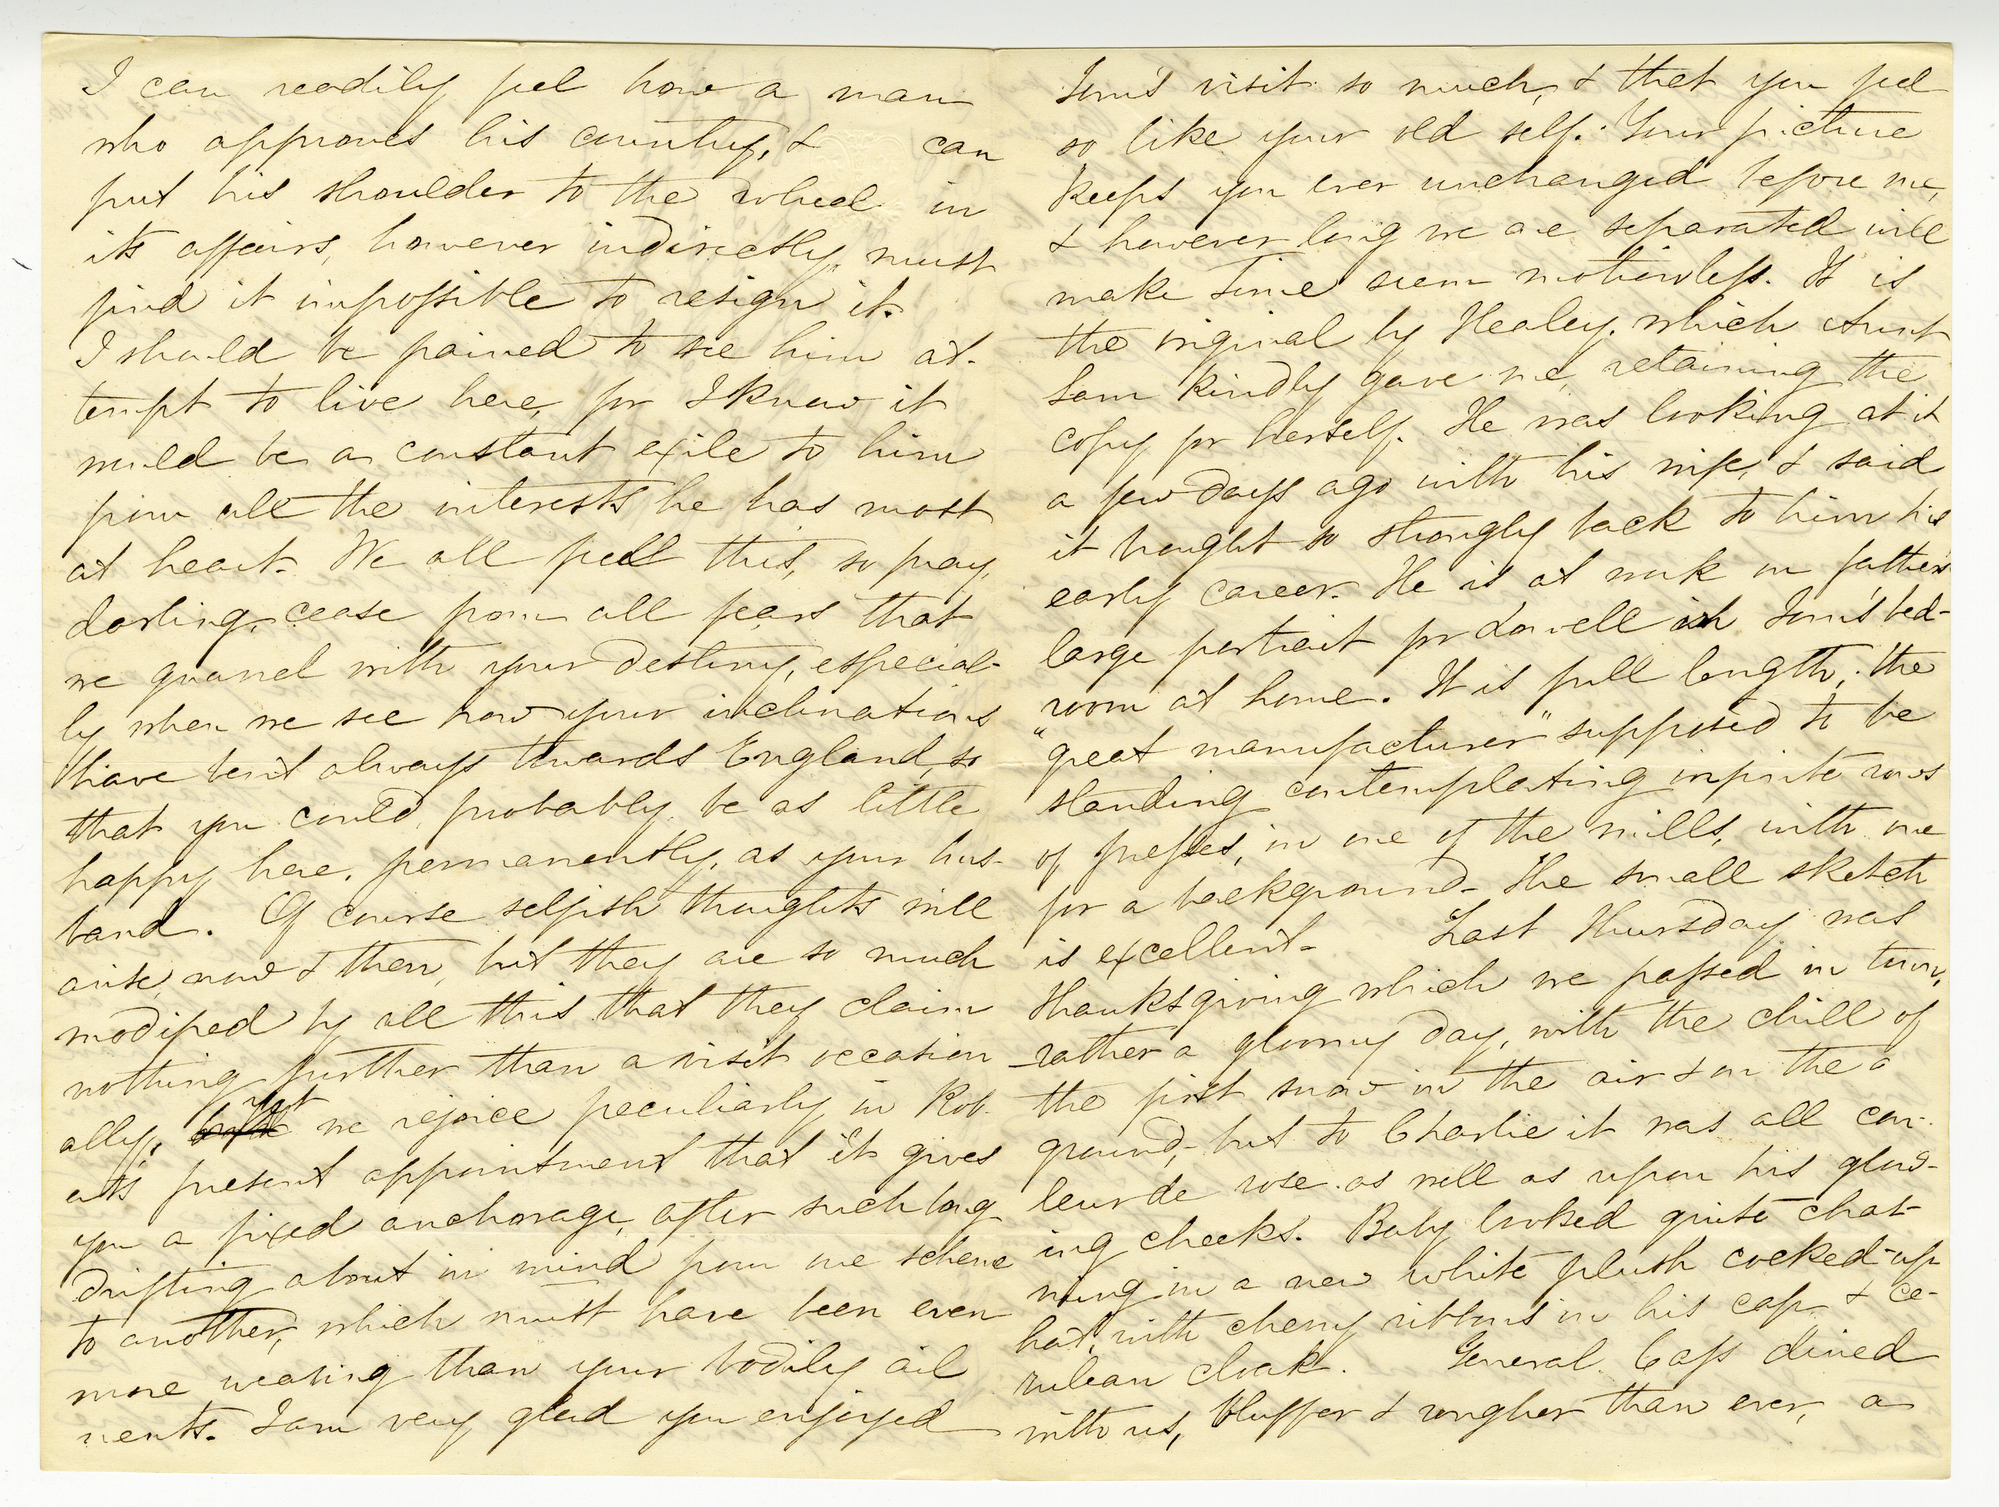 I can readily feel how a man
who approves his country, & can
put his shoulder to the wheel in
its affairs, however indirectly, must
find it impossible to resign it.
I should be pained to see him at-
tempt to live here, for I know it
would be a constant exile to him
from all the interests he has most
at heart. We all feel this, so pray,
darling, cease from all fears that
we quarrel with your destiny, especial-
ly when we see how your inclinations
have bent always towards England, so
that you could, probably, be as little
happy here, permanently, as your hus-
band. Of course selfish thoughts will
arise, now & then, but they are so much
modified by all this that they claim
nothing further than a visit occasion
ally, yet we rejoice peculiarly in Rob-
ert's present appointment that it gives
you a fixed anchorage, after such long
drifting about in mind from one scheme
to another, which must have been even
more wearing than your bodily ail
ments. I am very glad you enjoyed
Tom's visit so much, & that you feel
so like your old self. Your picture
keeps you ever unchanged before me,
& however long we are separated will
make Time seem motionless. It is
the original by Healey, which Aunt
Sam kindly gave me, retaining the
copy for herself. He was looking at it
a few days ago with his wife, & said
it brought so strongly back to him his
early career. He is at work on father's
large portrait for Lowell in Tom's bed-
room at home. It is full length, the
"great manufacturer" supposed to be
standing contemplating infinite rows
of presses, in one of the mills, with one
for a background. The small sketch
is excellent. Last Thursday was
Thanksgiving which we passed in town,
rather a gloomy day, with the chill of
the first snow in the air & on the
ground, but to Charlie it was all cou-
leur de rose as well as upon his glow-
ing cheeks. Baby looked quite char-
ming in a new white plush cocked-up
hat, with cherry ribbons in his cap, & ce-
rulean cloak. General Cass dined
with us, bluffer & rougher than ever, a